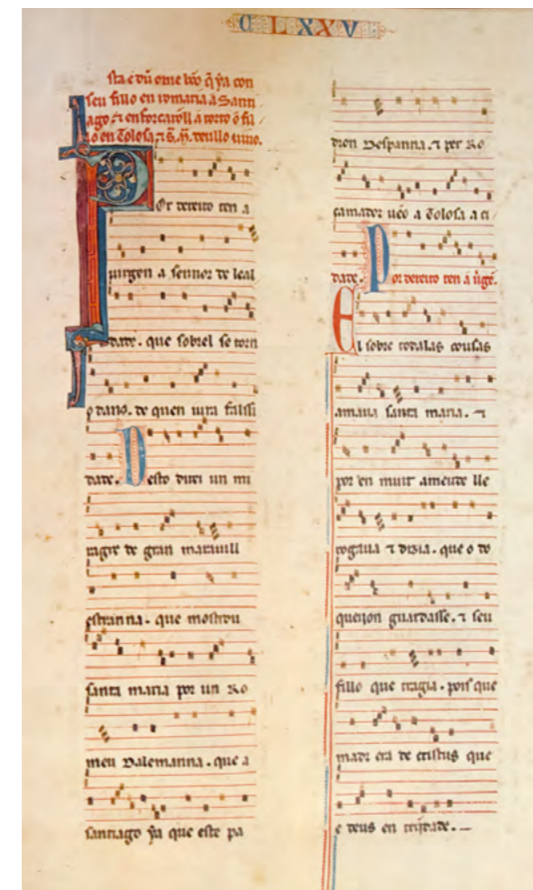 CLXXV
sta é dũ ome bõo q̃ ya con
seu fillo en romaria a Santi
ago ⁊ enforcarõll a torto o fi
llo en Tolosa, ⁊ s̃. m̃. deullo uiuo.
Por dereito ten a
uirgen a sennor de leal
dade. que sobrel se torn
o dano. de quen iura falssi
dade. Desto direi un mi
ragre de gran marauill
estranna. que mostrou
santa maria por un Ro
meu Dalemanna. que a
santiago ya que este pa
dron Despanna. ⁊ per Ro
camador ueo a Tolosa a ci
dade. Por dereito ten a uĩgẽ.
El sobre todalas cousas
amaua santa maria. ⁊
por en muit ameude lle
rogaua ⁊ dizia. que o do
queijon guardasse. ⁊ seu
fillo que tragia. pois que
madr era de cristus que
e deus en trĩjdade.